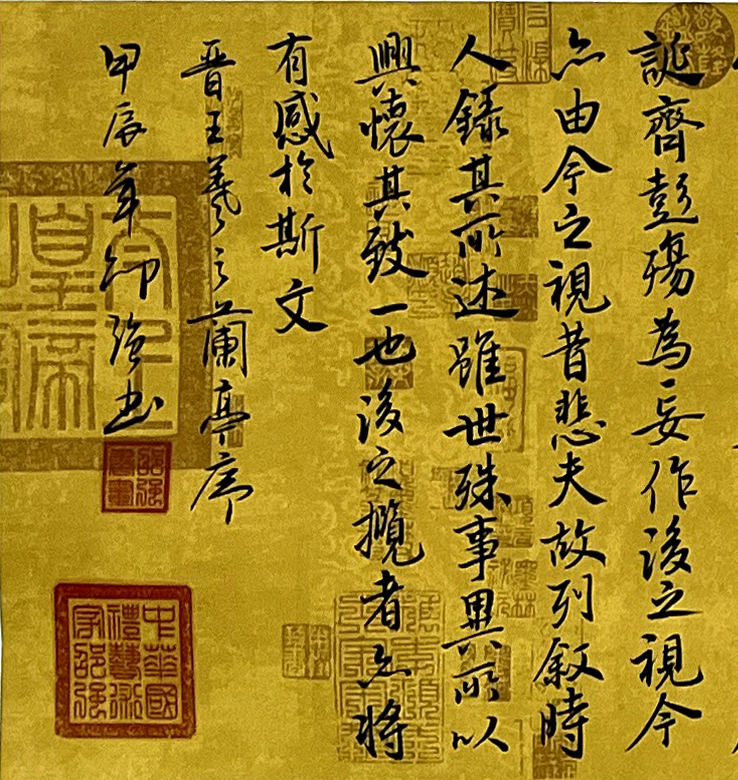 誕齊彭殤為妄作後之視今
亦由今之視昔悲夫故列敘時
人錄其所述雖世殊事異所以
興懷其致一也後之攬者亦將
有感於斯文
晉王羲之蘭亭序
甲辰年邵强书
邵强書畫
中華國禮藝術家邵强